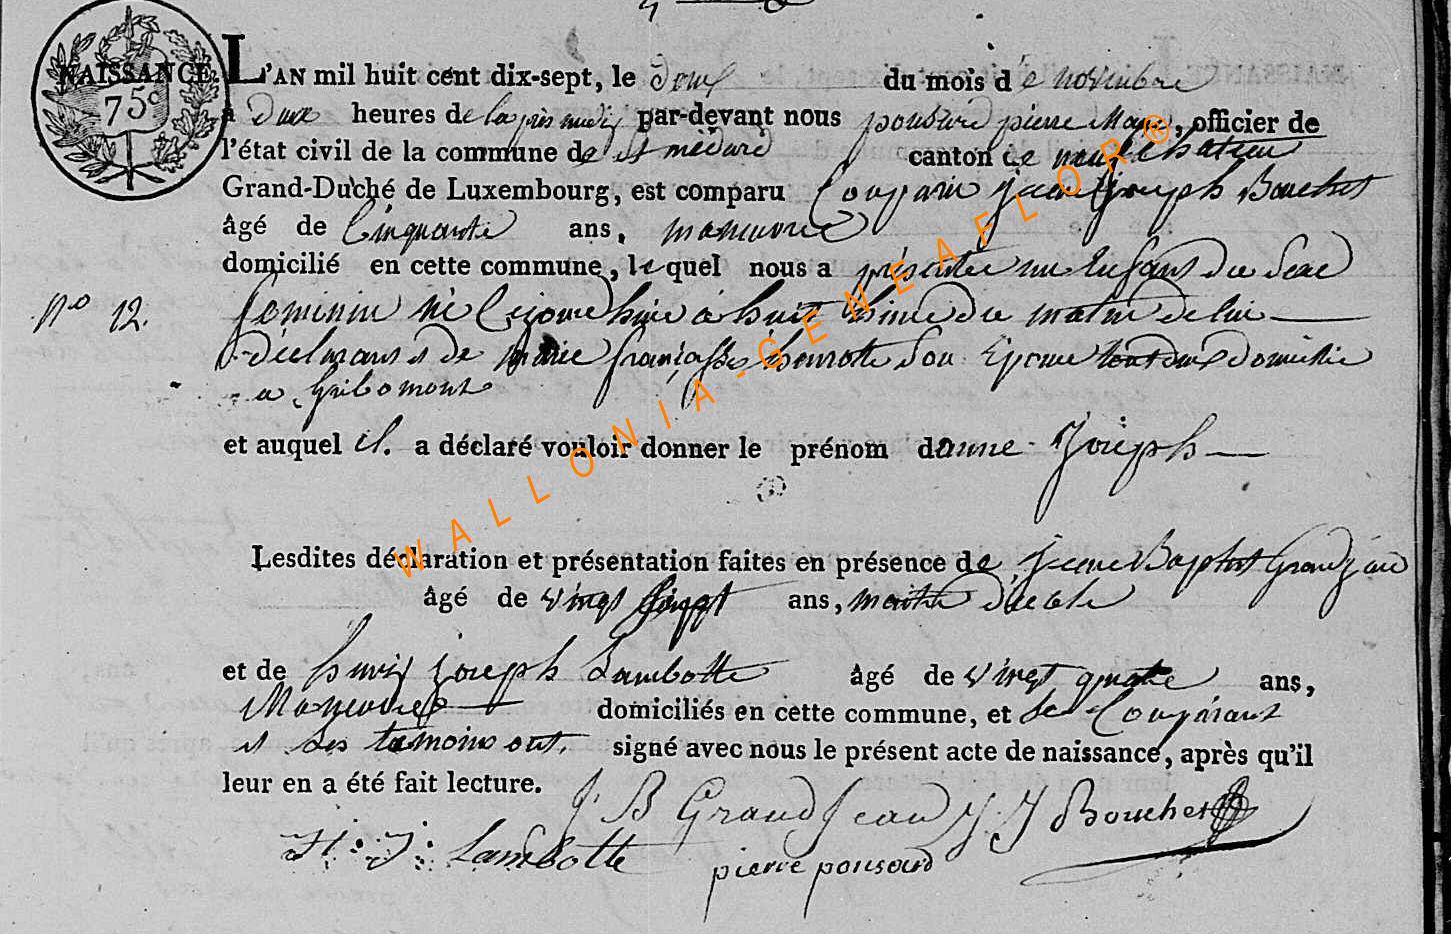 NAISSANCE
75c
L'AN mil huit cent dix-sept, le douze du mois de novembre
à deux heures de laprès midy par-devant nous ponsard pierre Maire, officier de
l'état civil de la commune de st médard canton de neufchateau
Grand-Duché de Luxembourg, est comparu Comparu jean joseph Bouchet
âgé de Cinquante ans, manuvre
domicilié en cette commune, lequel nous a présentée un Enfant du Sexe
N° 12.
feminin né Cejour à huit heure du matin de lui
déclarant et de marie françoise henrotte Son Epouse tout deux domicilie
a gribomont
et auquel il a déclaré vouloir donner le prénom danne Joseph
Lesdites déclaration et présentation faites en présence de jean Baptist Grandjean
âgé de vingt Sept ans, maitre d'ecole
et de henry joseph Lambotte âgé de vingt quatre ans,
Manuvre domiciliés en cette commune, et le Comparant
et Ses témoins ont signé avec nous le présent acte de naissance, après qu'il
leur en a été fait lecture.
J B GrandJean J J Bouchet
H: J: Lambotte pierre ponsard
WALLONIA-GENEAFLOR®